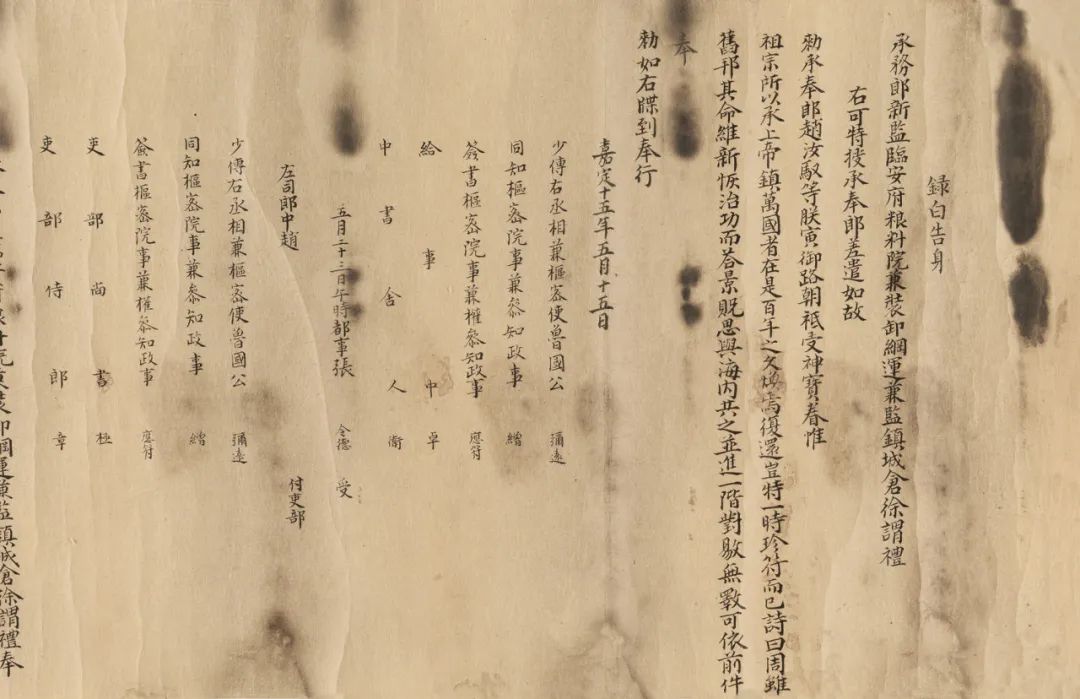 錄白告身
承務郎新監臨安府粮料院兼裝卸綱運兼監鎮城倉徐謂禮
右可特授承奉郎差遣如故
勑承奉郎趙汝馭等朕寅御路朝祗受神寶眷惟
祖宗所以承上帝鎮萬國者在是百年之久焂焉復還豈特一時珍符而已詩曰周雖
舊邦其命維新恢治功而荅景貺思與海內共之並進一階對敭無斁可依前件
奉
勑如右牒到奉行
嘉定十五年五月十五日
少傅右丞相兼樞密使魯國公 彌遠
同知樞密院事兼參知政事 繒
簽書樞密院事兼權參知政事 應符
給事中 卓
中書舍人 衛
五月二十二日午時都事張 令德 受
左司郎中趙 付吏部
少傅右丞相兼樞密使魯國公 彌遠
同知樞密院事兼參知政事 繒
簽書樞密院事兼權參知政事 應符
吏部尚書 極
吏部侍郎 章
粮料院兼裝卸綱運兼監鎮城倉徐謂禮奉